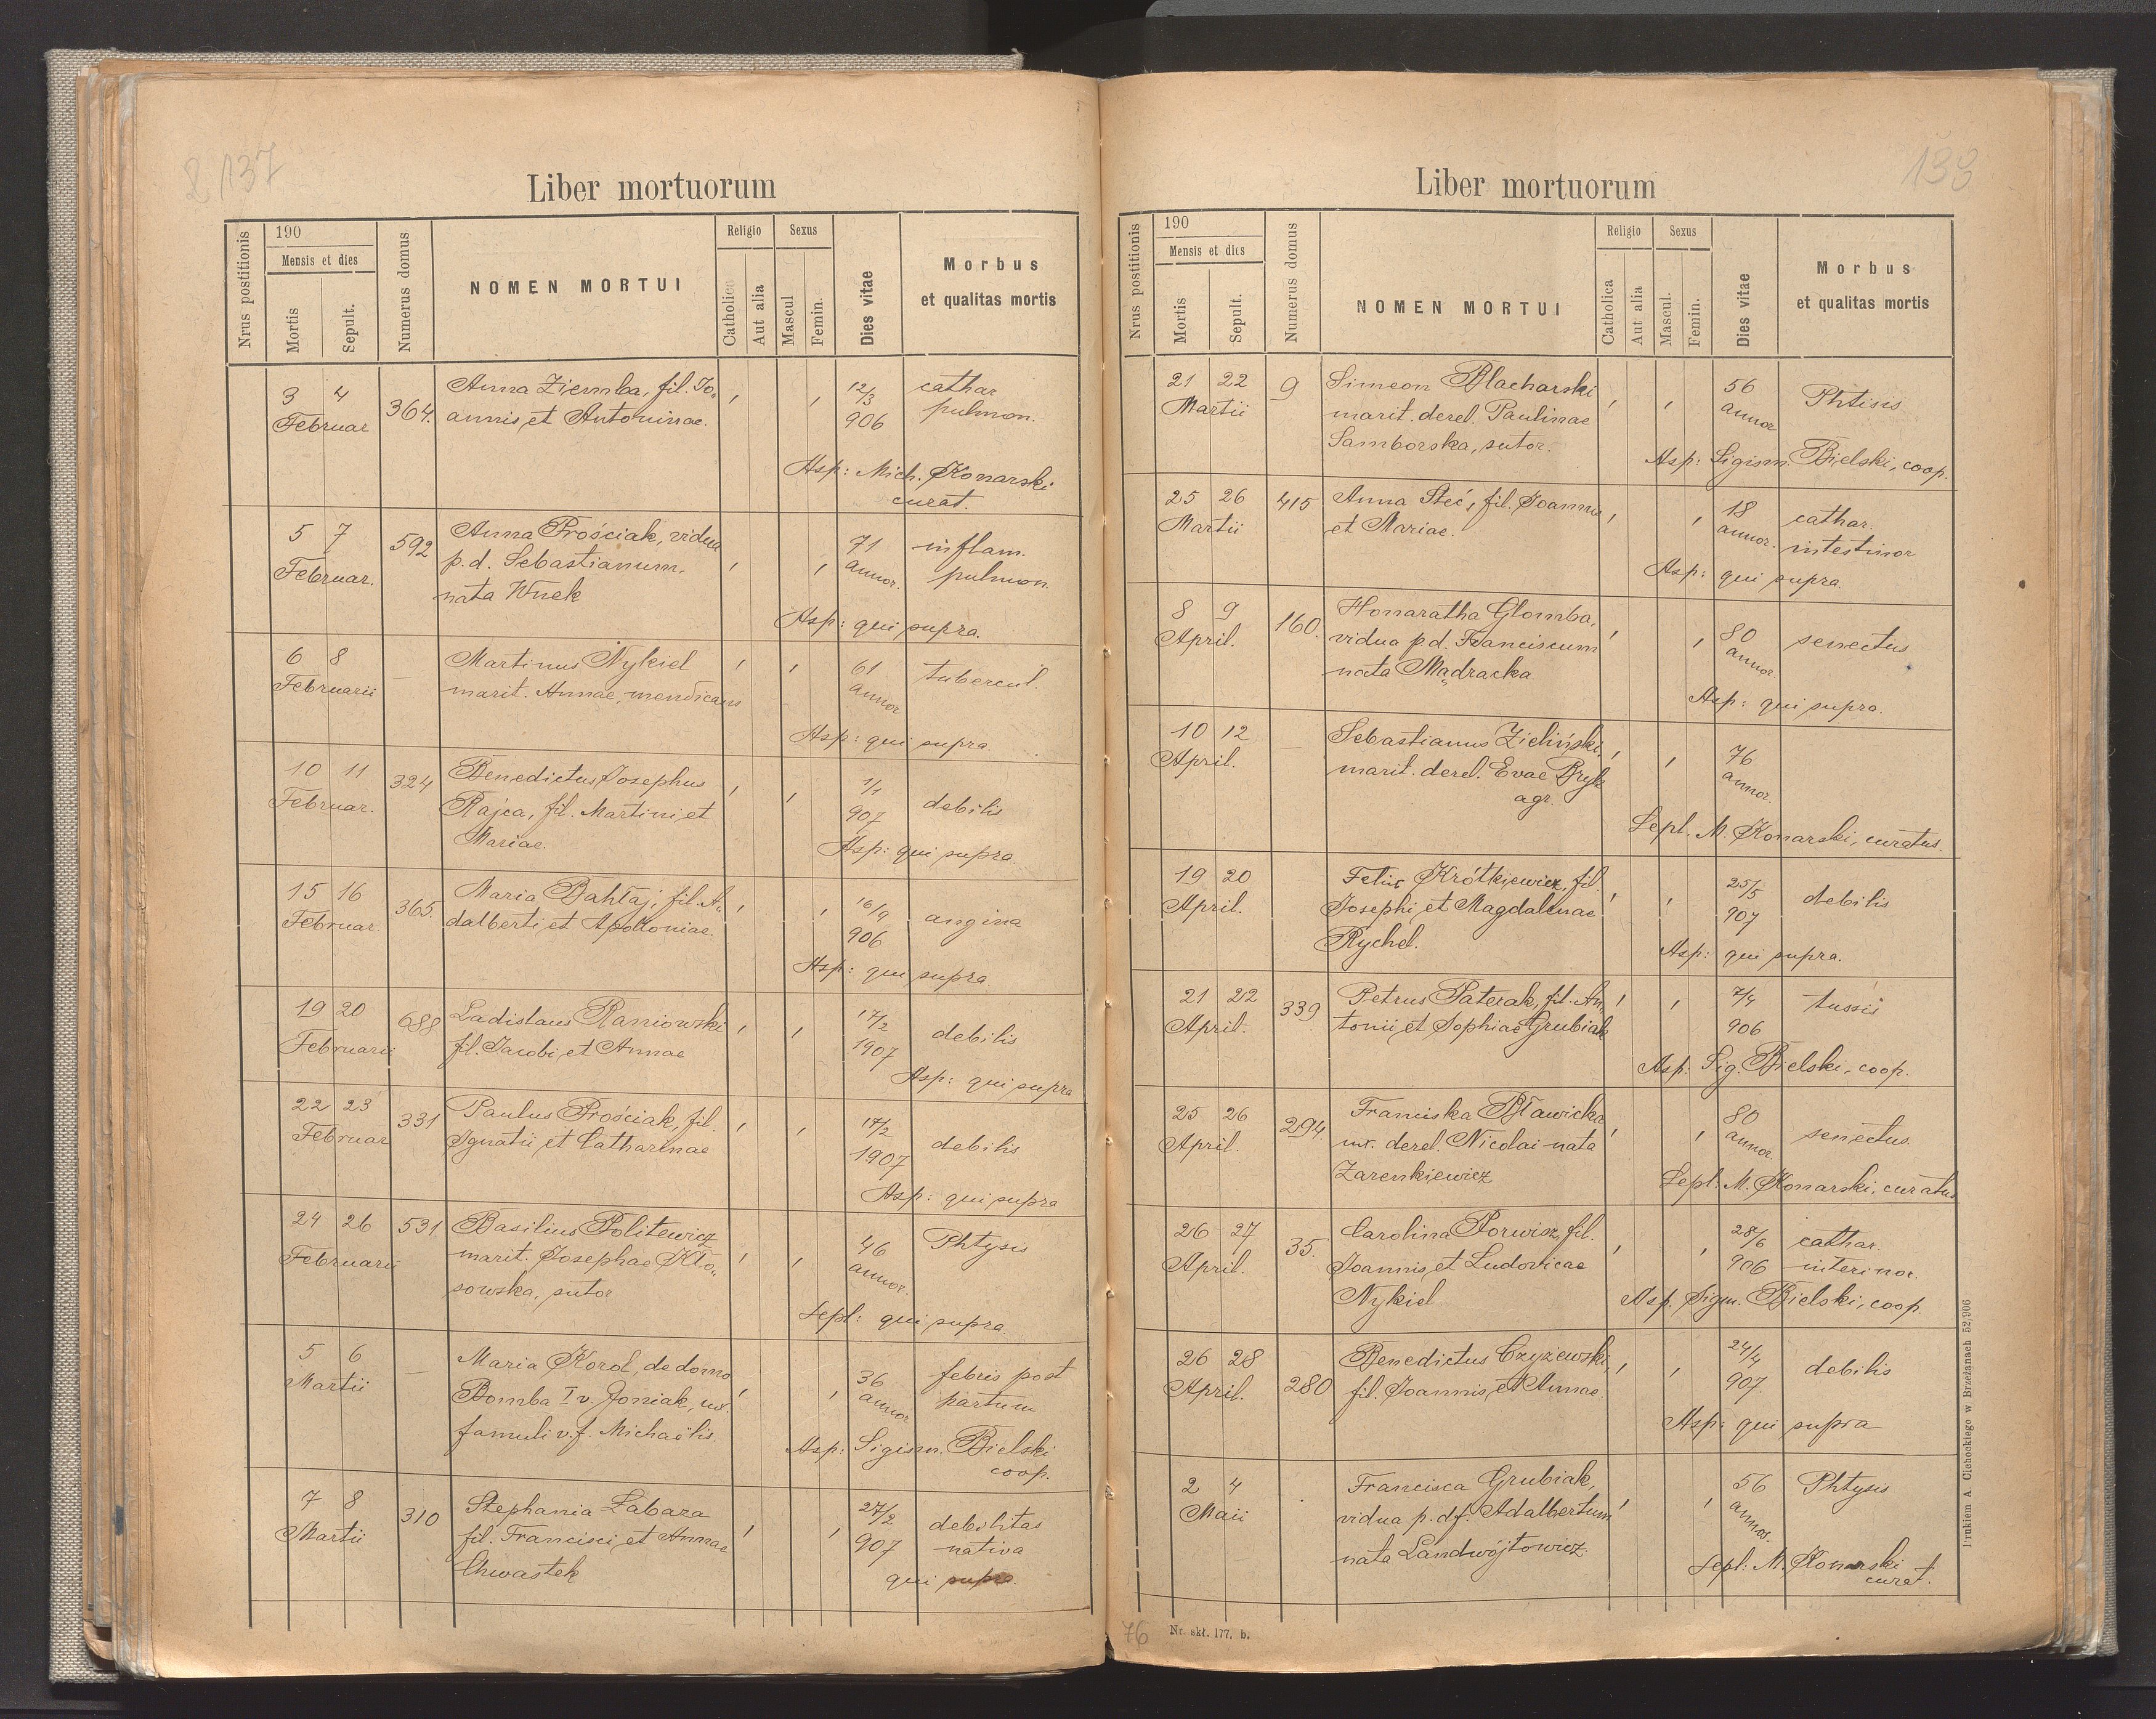 2/137
Liber mortuorum
Nrus postitionis
190
Mensis et dies
Mortis
Sepult.
Numerus domus
NOMEN MORTUI
Religio
Catholica
Aut alia
Sexus
Mascul
Femin.
Dies vitae
Morbus
et qualitas mortis
3 4 364. Anna Ziemba, fil. Jo„ 12/3 cathar
Februar annis et Antoninae. 906 pulmon.
Asp: Mich. Konarski
curat.
5 7 592 Anna Prościak, vidua 71 inflam.
Februar. p.d. Sebastianum, annor. pulmon.
nata Wnek
Asp: qui supra.
6 8 — Martinus Nykiel 61 tubercul.
Februarii marit. Annae, mendicans annor
Asp: qui supra.
10 11 324 Benedictus Josephus 1/1 debilis
Februar. Rajca, fil. Martini et 907
Mariae. Asp: qui supra.
15 16 365. Maria Bahłaj, fil. A„ 16/9 angina
Februar. dalberti et Apoloniae. 906
Asp: qui supra.
19 20 688 Ladislaus Raniowski 17/2 debilis
Februarii fil. Jacobi et Annae 1907
Asp: qui supra
22 23 331 Paulus Prościak, fil. 17/2 debilis
Februar Ignatii et Catharinae 1907
Asp: qui supra
24 26 531 Basilius Politewicz 46 Phtysis
Februarii marit. Josephae Kło„ annor.
sowska, sutor
Sepl: qui supra.
5 6 — Maria Korol, de domo 36 febris post
Martii Bomba I v. Joniak, ux. annor partum
famuli v.f. Michaëlis.
Asp: Sigism. Bielski
coop.
7 8 310 Stephania Łabaza 27/2 debilitas
Martii fil. Francisci et Annae 907 nativa
Chwastek qui supra.
133
Liber mortuorum
Nrus postitionis
190
Mensis et dies
Mortis
Sepult.
Numerus domus
NOMEN MORTUI
Religio
Catholica
Aut alia
Sexus
Mascul.
Femin.
Dies vitae
Morbus
et qualitas mortis
21 22 9 Simeon Blacharski 56 Phtisis
Martii marit. derel. Paulinae annor
Samborska, sutor. Asp: Sigism. Bielski, coop.
25 26 415 Anna Steć, fil. Joannis 18 cathar.
Martii et Mariae. annor. intestinor
Asp: qui supra.
8 9 160. Honaratha Glomba, 80 senectus
April. vidua p.d. Franciscum annor.
nata Mądracka
Asp: qui supra.
10 12 — Sebastianus Zieliński, 76
April. marit. derel. Evae Bryk annor.
agr.
Sepl. M. Konarski, curatus.
19 20 Felix Krótkiewicz, fil. 25/5 debilis
April. Josephi et Magdalenae 907
Rychel. Asp: qui supra.
21 22 339 Petrus Paterak, fil. An„ 7/4 tussis
April. tonii et Sophiae Grubiak 906
Asp: Sig. Bielski, coop.
25 26 294. Franciska Bławicka 80 senectus.
April. ux. derel. Nicolai nata annor.
Zarenkiewicz Sepl: M. Konarski, curatus
26 27 35. Carolina Porwisz, fil. 28/6 cathar.
April. Joannis et Ludovicae 906 interinor.
Nykiel Asp. Sigm. Bielski, coop.
26 28 280 Benedictus Czyżewski, 24/4 debilis
April. fil. Joannis et Annae. 907.
Asp: qui supra
2 4 Francisca Grubiak, 56 Phtysis
Maii vidua p. df. Adalbertum annor.
nata Landwójtowicz.
Sepl: M. Konarski
curat.
76
Nr. skł. 177. b.
Drukiem A Cichockiego w Brzeżanach 52,906